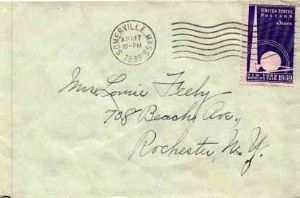 SOMERVILLE, MASS.
APR 17
10-PM
1939
UNITED STATES
POSTAGE
NEW YORK
1939
Mrs Louie Feely
708 Beach Ave.,
Rochester, N. Y.